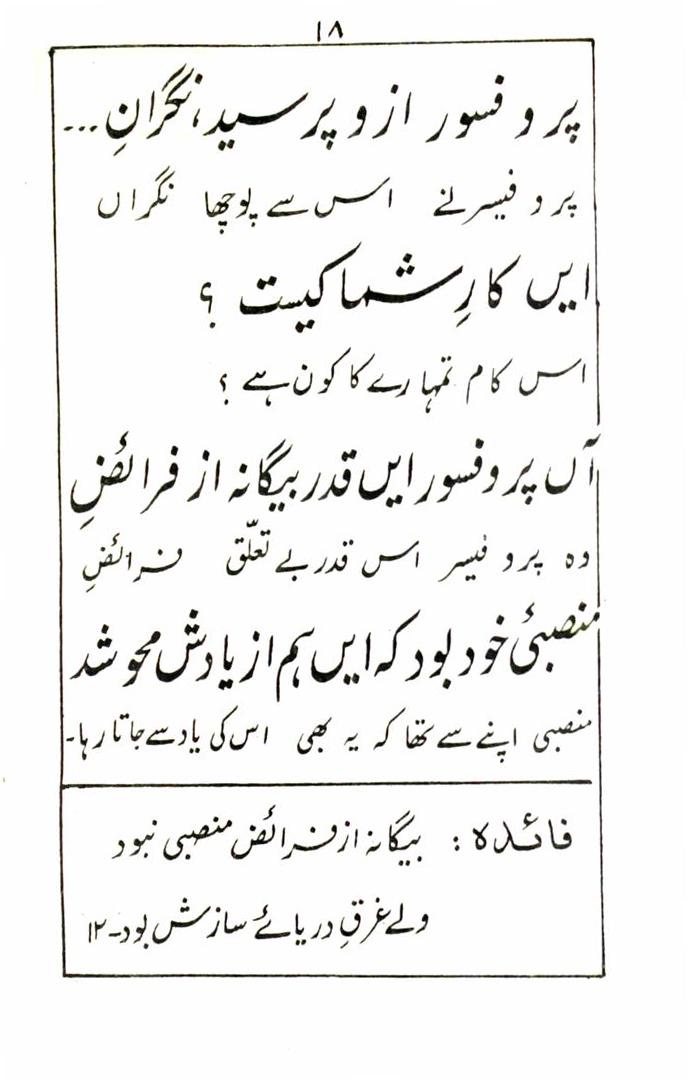 ۱۸
پروفسور ازو پرسید، نگرانِ...
پروفیسر نے اس سے پوچھا نگراں
ایں کارِ شما کیست ؟
اس کام تمہارے کا کون ہے ؟
آں پروفسور ایں قدر بیگانہ از فرائضِ
وہ پروفیسر اس قدر بے تعلّق فرائضِ
منصبیٔ خود بود کہ ایں ہم از یادش محو شد
منصبی اپنے سے تھا کہ یہ بھی اس کی یاد سے جاتا رہا۔
فائدہ : بیگانہ از فرائض منصبی نبود
ولے غرقِ دریائے سازش بود۔۱۲